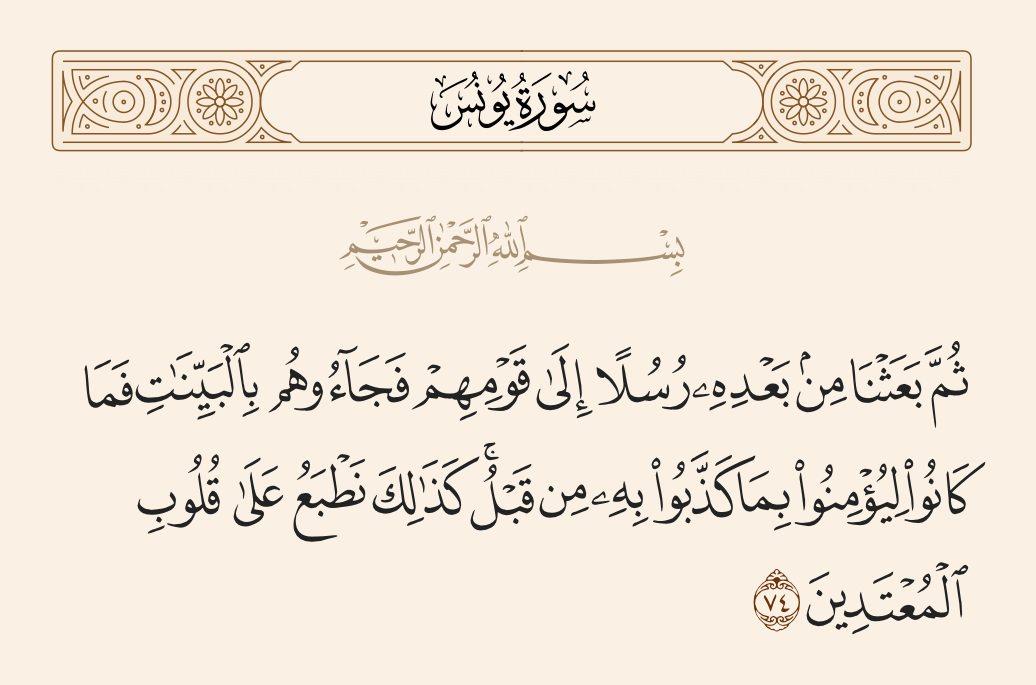 سُورَةُ يُونُسَ
بِسْمِ ٱللَّهِ ٱلرَّحْمَٰنِ ٱلرَّحِيمِ
ثُمَّ بَعَثْنَا مِنۢ بَعْدِهِۦ رُسُلًا إِلَىٰ قَوْمِهِمْ فَجَآءُوهُم بِٱلْبَيِّنَٰتِ فَمَا
كَانُوا۟ لِيُؤْمِنُوا۟ بِمَا كَذَّبُوا۟ بِهِۦ مِن قَبْلُ ۚ كَذَٰلِكَ نَطْبَعُ عَلَىٰ قُلُوبِ
ٱلْمُعْتَدِينَ ٧٤